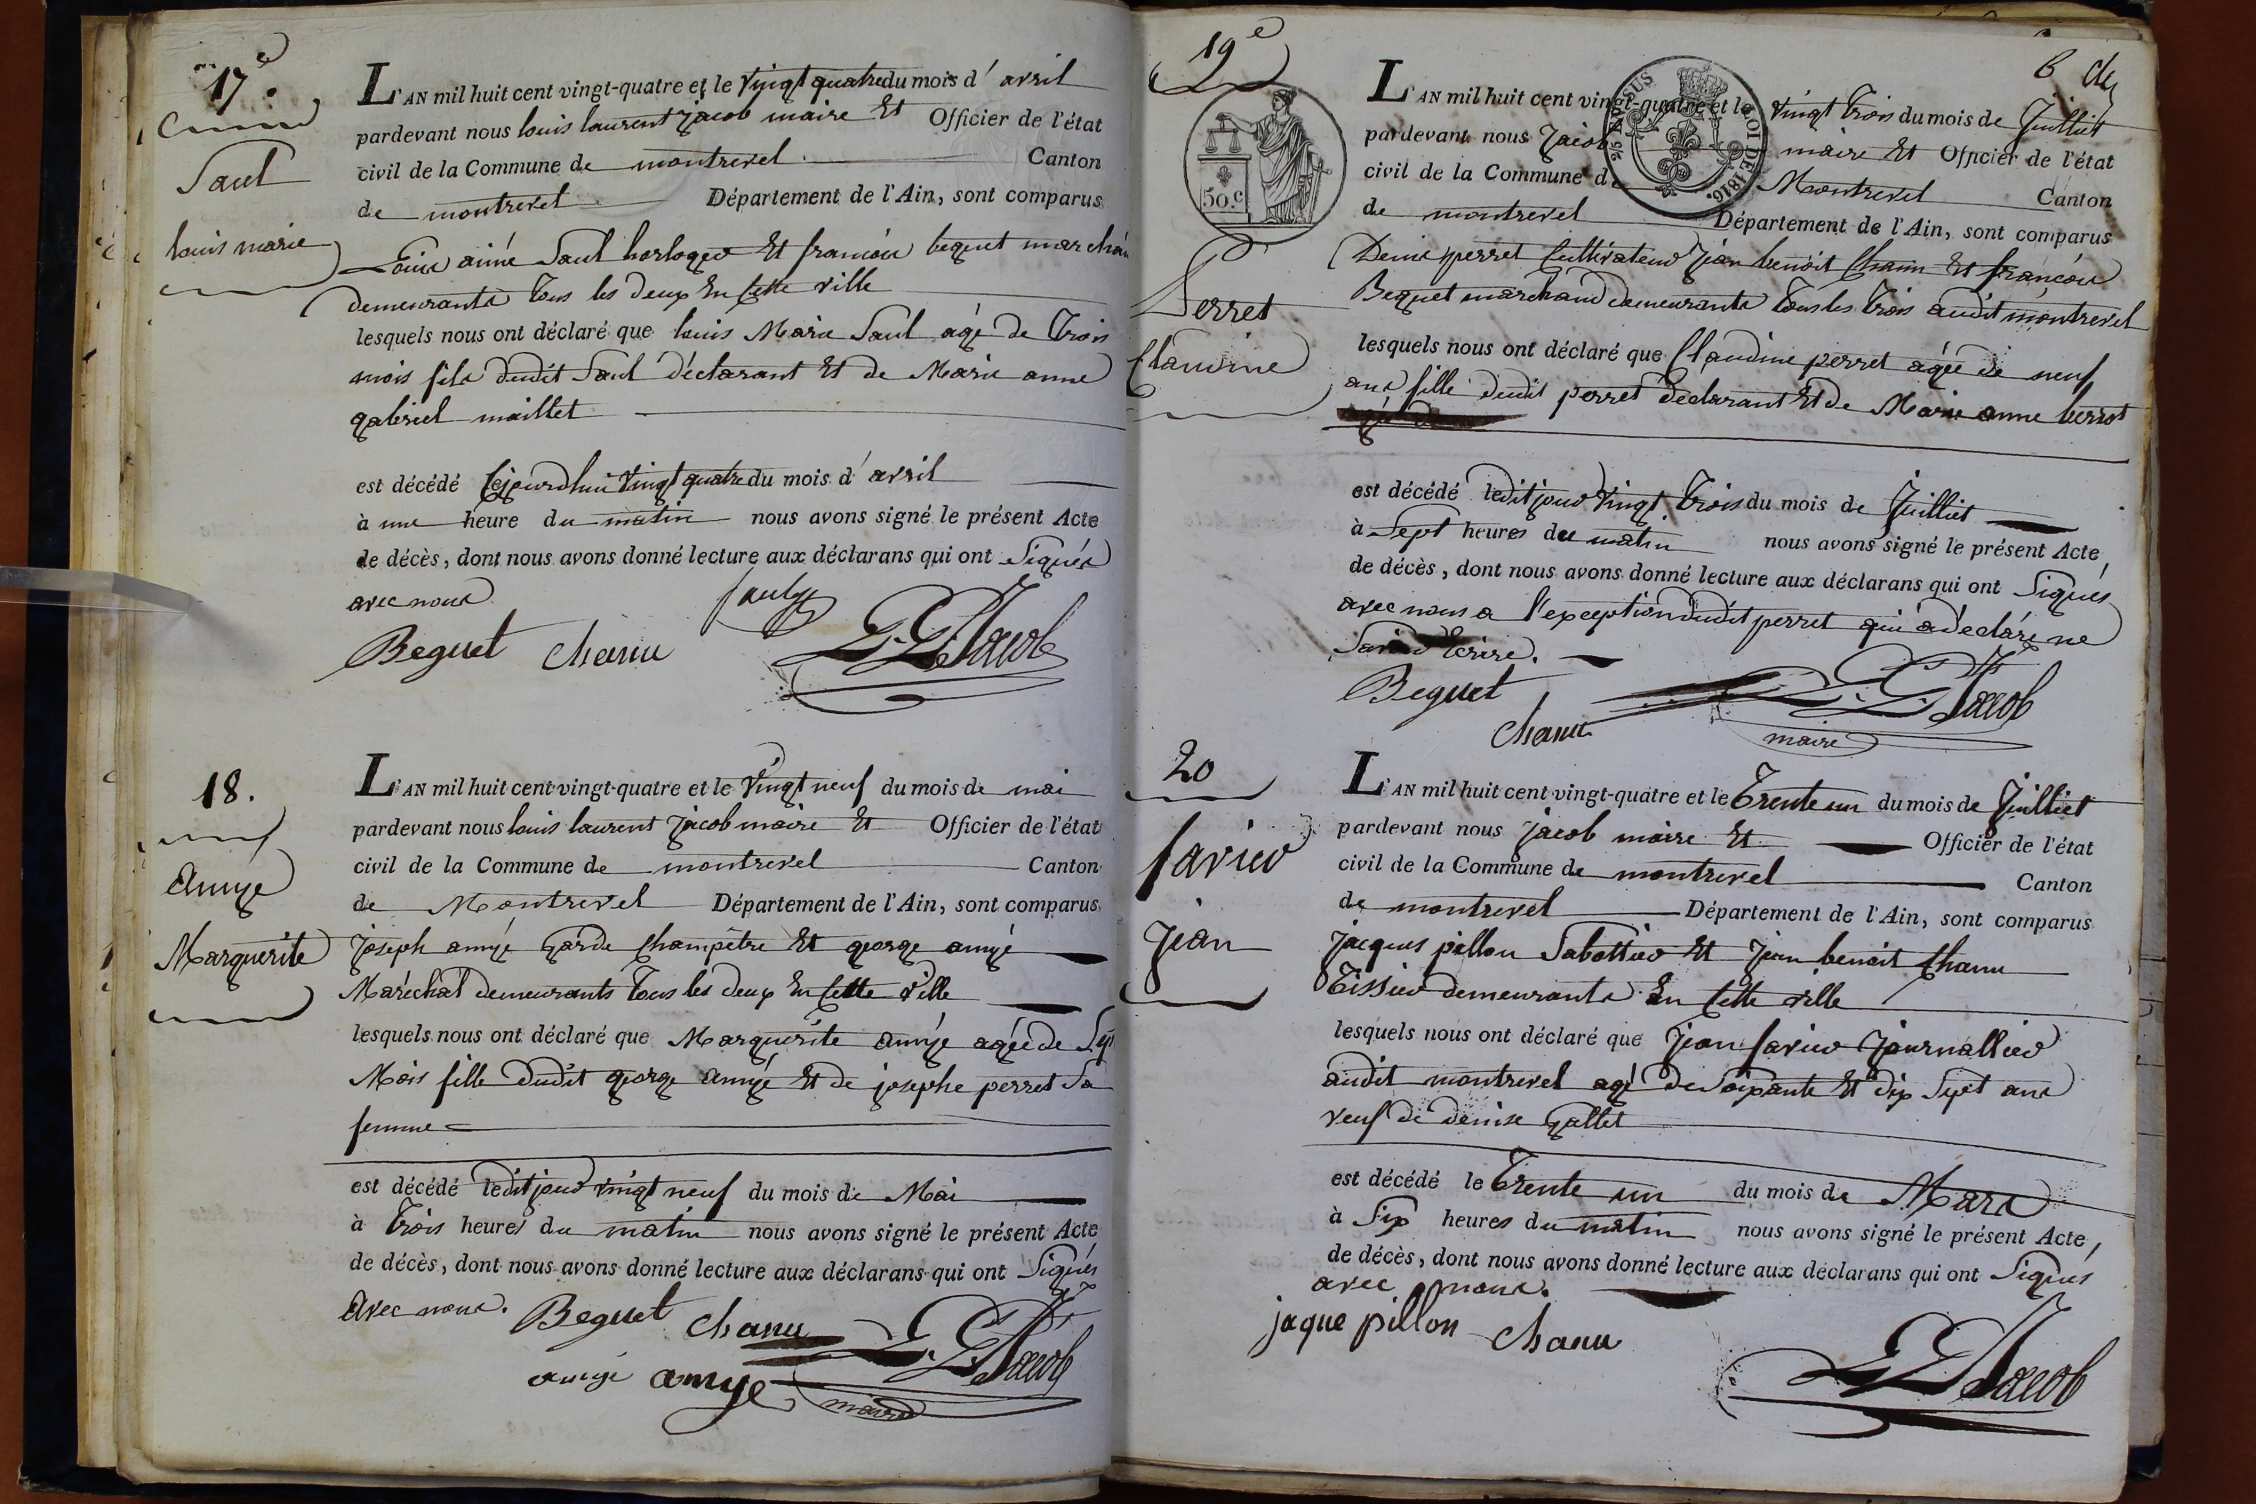 17.e
Saul
louis marie
L'AN mil huit cent vingt-quatre et le vingt quatre du mois d' avril
pardevant nous louis laurent jacob maire Et Officier de l'état
civil de la Commune de montrevel Canton
de montrevel Département de l'Ain, sont comparus
Louis aimé Saul horloger Et francois beguet marchand
demeurants tous les deux En cette ville
lesquels nous ont déclaré que louis Marie Saul agé de trois
mois fils dudit Saul déclarant Et de Marie anne
gabriel maillet
est décédé cejourdhui vingt quatre du mois d' avril
à une heure du matin nous avons signé le présent Acte
de décès, dont nous avons donné lecture aux déclarans qui ont Signés
avec nous
Saul
Beguet Chanu L. L. Jacob
18.
Amye
Marguerite
L'AN mil huit cent vingt-quatre et le vingt neuf du mois de mai
pardevant nous louis laurent jacob maire Et Officier de l'état
civil de la Commune de montrevel Canton
de Montrevel Département de l'Ain, sont comparus
joseph amyé garde Champêtre Et george amyé
Maréchal demeurants tous les deux En cette ville
lesquels nous ont déclaré que Marguerite amye agée de Sept
Mois fille dudit george amyé Et de josephe perret Sa
femme
est décédé ledit jour vingt neuf du mois de Mai
à trois heures du matin nous avons signé le présent Acte
de décès, dont nous avons donné lecture aux déclarans qui ont Signés
avec nous. Beguet Chanu L. L. Jacob
amyé amye maire
19e
6
50.c
2/5 EN SUS
LOI DE 1816.
Perret
Claudine
L'AN mil huit cent vingt-quatre et le vingt trois du mois de juilliet
pardevant nous jacob maire Et Officier de l'état
civil de la Commune de Montrevel Canton
de montrevel Département de l'Ain, sont comparus
Denis perret Cultivateur jean benoit Chanu Et francois
Beguet marchand demeurants tous les trois audit montrevel
lesquels nous ont déclaré que Claudine perret agée de neuf
ans fille dudit perret déclarant Et de Marie anne
est décédé ledit jour vingt trois du mois de juilliet
à Sept heures du matin nous avons signé le présent Acte,
de décès, dont nous avons donné lecture aux déclarans qui ont Signés
avec nous a l'exception dudit perret qui a déclaré ne
Savoir Ecrire.
Beguet
Chanu L. L. Jacob
maire
20
Savier
jean
L'AN mil huit cent vingt-quatre et le trente un du mois de juilliet
pardevant nous jacob maire Et Officier de l'état
civil de la Commune de montrevel Canton
de montrevel Département de l'Ain, sont comparus
jacques pillon Sabottier Et jean benoit Chanu
tissier demeurants En cette ville
lesquels nous ont déclaré que jean Savier journallier
audit montrevel agé de Soixante Et dix Sept ans
veuf de denise gallet
est décédé le trente un du mois de Mars
à Six heures du matin nous avons signé le présent Acte,
de décès, dont nous avons donné lecture aux déclarans qui ont Signés
avec nous.
jaque pillon Chanu
L. L. Jacob